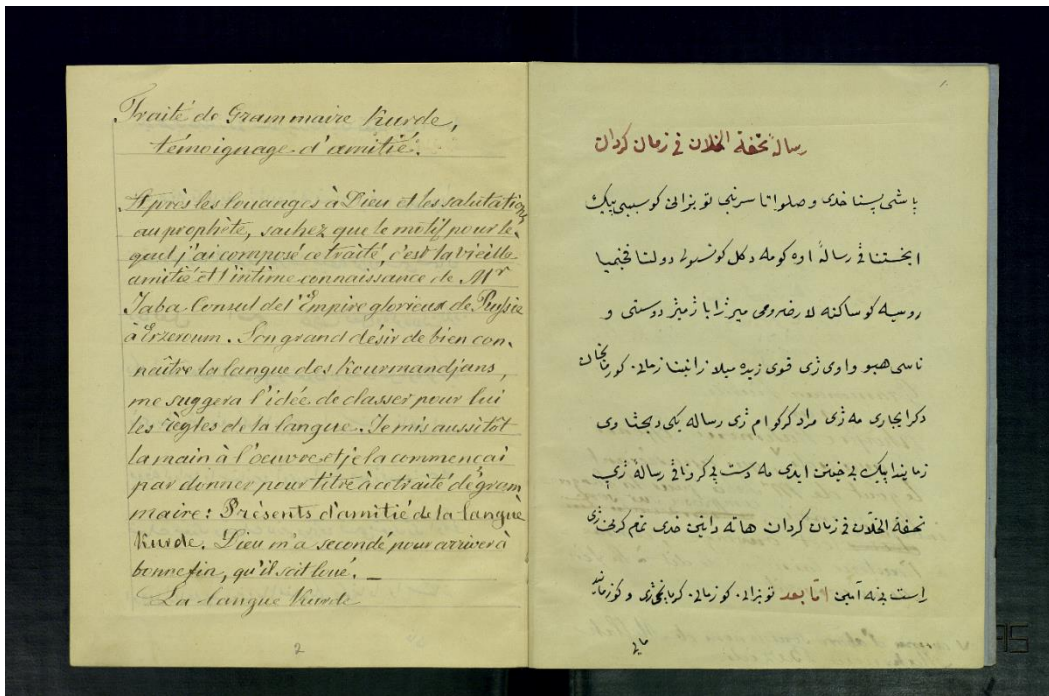 Traité de Grammaire Kurde,
témoignage d'amitié.
Après les louanges à Dieu et les salutations
au prophète, sachez que le motif pour le-
quel j'ai composé ce traité, c'est la vieille
amitié et l'intime connaissance de Mr
Jaba Consul de l'Empire glorieux de Russie
à Erzeroum. Son grand désir de bien con-
naître la langue des Kourmandjans,
me suggera l'idée de classer pour lui
les règles de la langue. Je mis aussitôt
la main à l'oeuvre et je la commençai
par donner pour titre à ce traité de gram
maire: Présents d'amitié de la langue
Kurde. Dieu m'a secondé pour arriver à
bonne fin, qu'il soit loué. _
La langue Kurde
2
رسالۀ تحفة الخلان في زمان كردان
پاشى پسنا خدى و صلواتا سرنبى تو بزانى كو سببى پيك
ئيخستنا فى رسالۀ اوه كو مه دكل كونسولى دولتا فخيميا
روسيه كو ساكنه ل ارضرومى ميرزابا ژميژ دوستى و
ناسى هبو و اوى ژى قوى زيده ميلا زانينا زمانى كورمانجان
دكر ايجارى مه ژى مراد كر كو ام ژى رساله يكى دبحثا وى
زمانيدا پيك بى ايدى مه دست پى كر و نافى رساله ژى
تحفة الخلان في زمان كردان هاته دانين خدى تمام كرنى ژى
راست بينه آمين اما بعد تو بزانى كو زمانى كرمانجى ژى و كو زمان